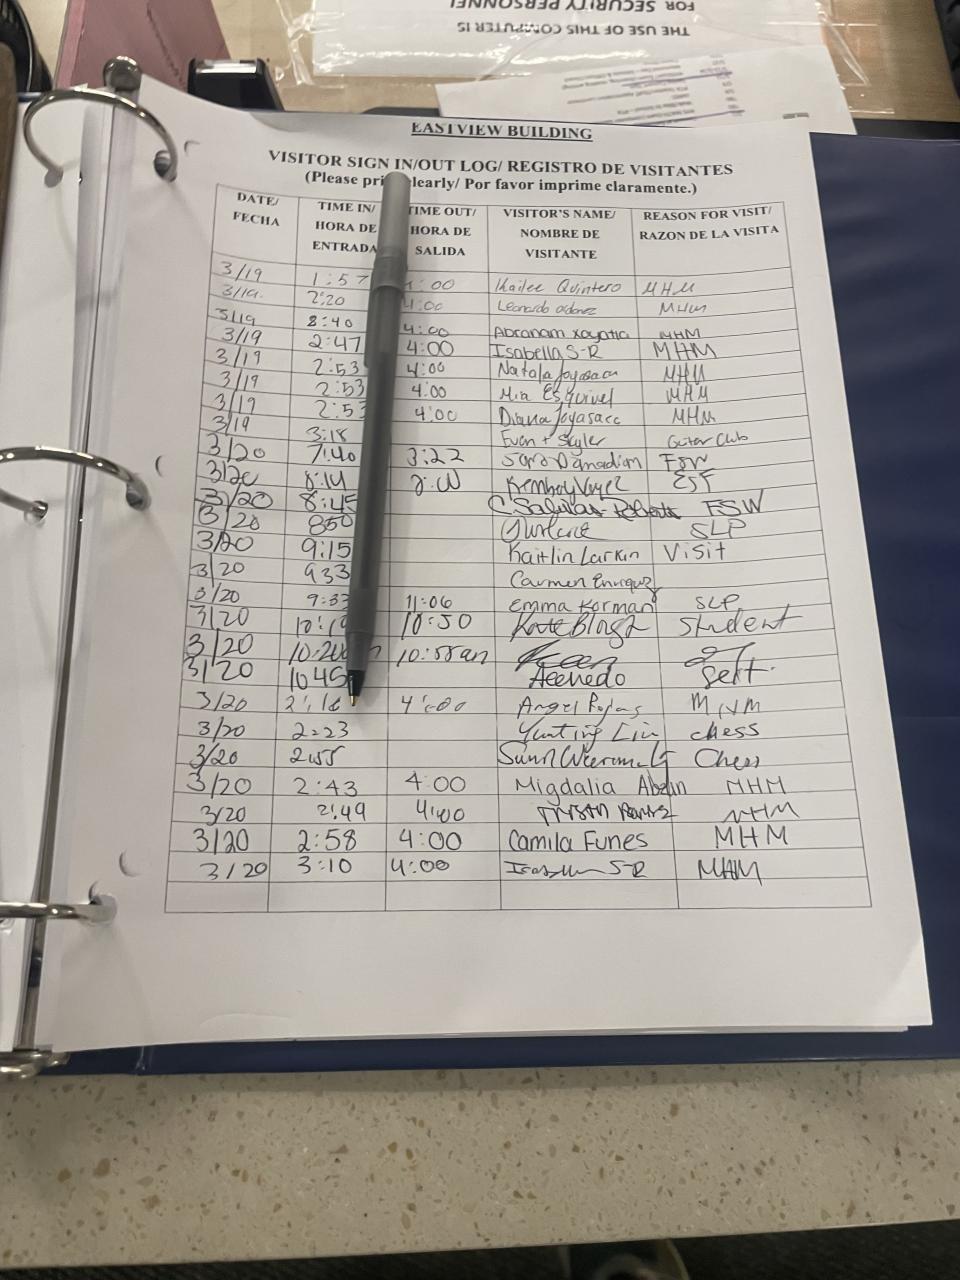 FOR SECURITY PERSONNEL
THE USE OF THIS COMPUTER IS
EASTVIEW BUILDING
VISITOR SIGN IN/OUT LOG/ REGISTRO DE VISITANTES
(Please pri learly/ Por favor imprime claramente.)
DATE/ FECHA TIME IN/ HORA DE ENTRADA TIME OUT/ HORA DE SALIDA VISITOR'S NAME/ NOMBRE DE VISITANTE REASON FOR VISIT/ RAZON DE LA VISITA
3/19 1:57 4:00 Kailee Quintero MHM
3/19 2:20 4:00 Leonardo MHM
3/19 8:40 4:00 Abranam MHM
3/19 2:47 4:00 Isabella S-R MHM
3/19 2:53 4:00 MHM
3/19 2:53 4:00 Mia Esquivel MHM
3/19 2:53 4:00 Diana MHM
3/19 3:18 Evan + Skyler Guitar Club
3/20 7:40 3:22 FSW
3/20 8:14
3/20 8:45 FSW
3/20 850 SLP
3/20 9:15 Kaitlin Larkin Visit
3/20 933 Carmen Enriquez
3/20 9:33 11:06 Emma Korman SLP
3/20 10:19 10:50 Kate Student
3/20 10:20 10:58am
3/20 1045 Acevedo
3/20 2:18 4:00 Angel Rojas MHM
3/20 2:23 Yunting Liu chess
3/20 2:55 Chess
3/20 2:43 4:00 Migdalia MHM
3/20 2:49 4:00 MHM
3/20 2:58 4:00 Camila Funes MHM
3/20 3:10 4:00 S-R MHM